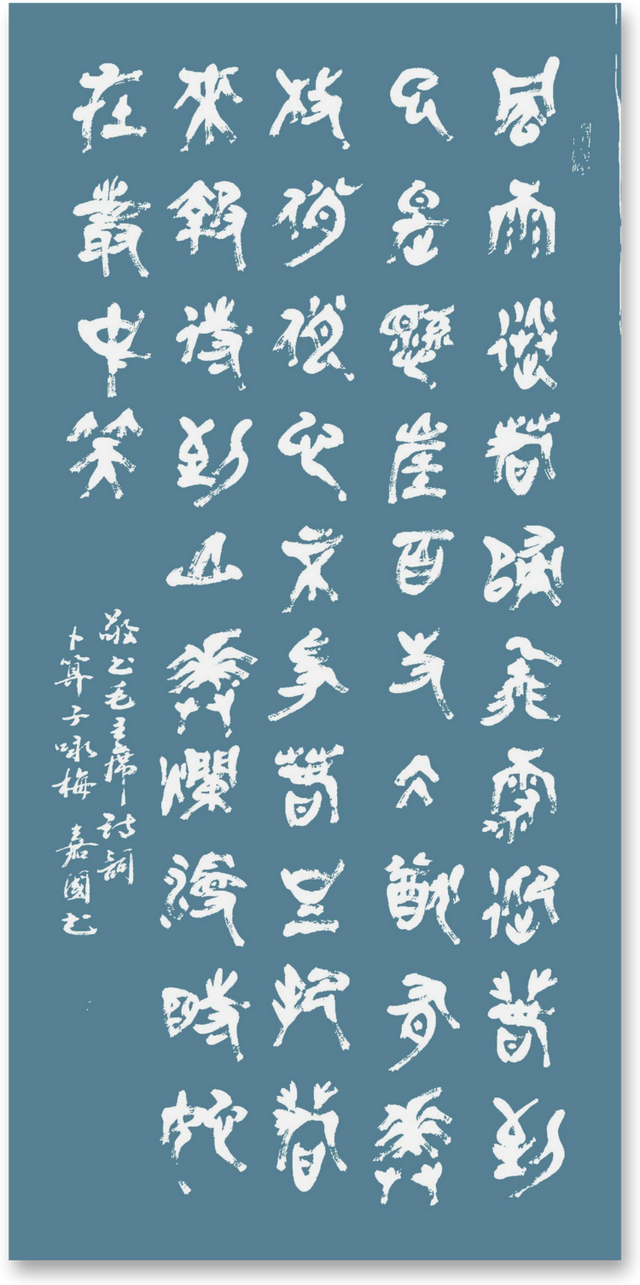 風雨送春歸飛雪迎春到
已是懸崖百丈冰猶有花
枝俏俏也不爭春只把春
來報待到山花爛漫時她
在叢中笑
敬书毛主席詩詞
卜算子咏梅 嘉國书